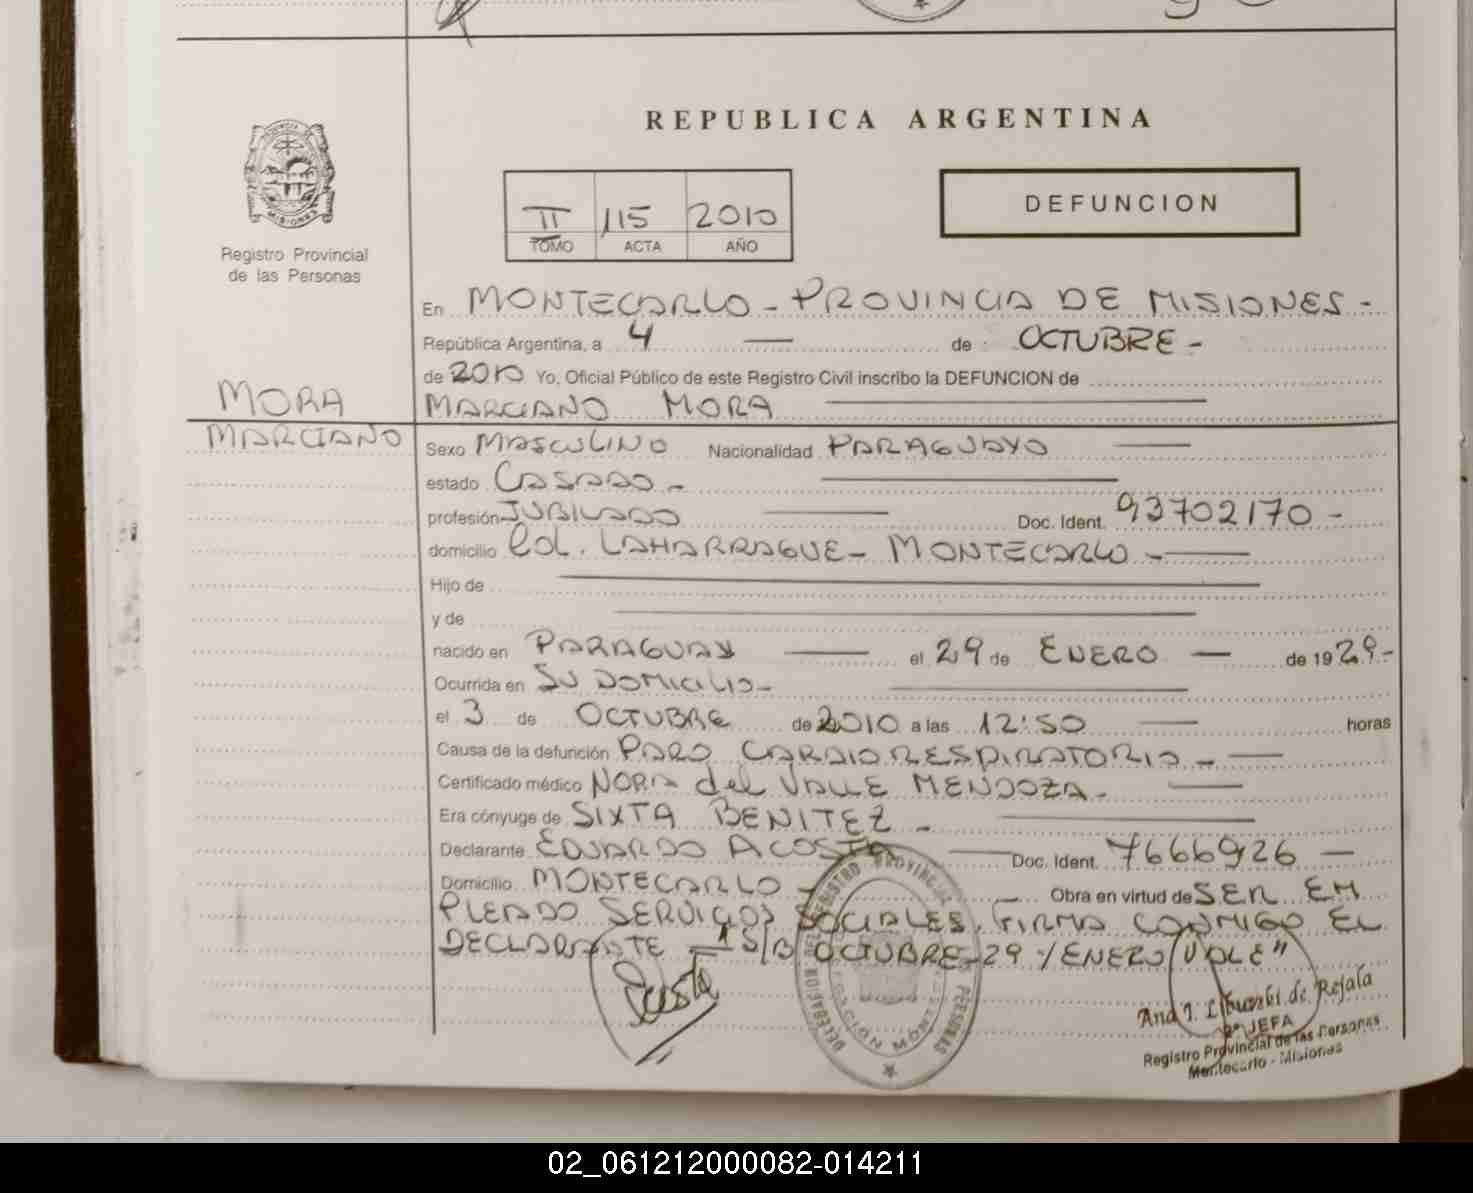 REPUBLICA ARGENTINA
PROVINCIA DE
MISIONES
Registro Provincial
de las Personas
II 115 2010
TOMO ACTA AÑO
DEFUNCION
En MONTECARLO - PROVINCIA DE MISIONES -
República Argentina, a 4 — de OCTUBRE -
de 2010 Yo, Oficial Público de este Registro Civil inscribo la DEFUNCION de
MORA
MARCIANO MORA
MARCIANO
Sexo MASCULINO Nacionalidad PARAGUAYO —
estado CASADO - —
profesión JUBILADO — Doc. Ident. 93702170 -
domicilio COL. LAHARRAGUE - MONTECARLO - —
Hijo de —
y de —
nacido en PARAGUAY — el 29 de ENERO — de 1929.-
Ocurrida en SU DOMICILIO - —
el 3 de OCTUBRE de 2010 a las 12:50 — horas
Causa de la defunción PARO CARDIORESPIRATORIO - —
Certificado médico NORA del VALLE MENDOZA - —
Era cónyuge de SIXTA BENITEZ - —
Declarante EDUARDO ACOSTA — Doc. Ident. 7666926 —
Domicilio MONTECARLO - — Obra en virtud de SER EM
PLEADO SERVICIOS SOCIALES, FIRMA CONMIGO EL
DECLARANTE - S/B OCTUBRE - 29 / ENERO / VALE"
DELEGACION DEL REGISTRO PROVINCIAL PERSONAS
Ana I. de Rejala
2ª JEFA
Registro Provincial de las Personas
Montecarlo - Misiones
02_061212000082-014211